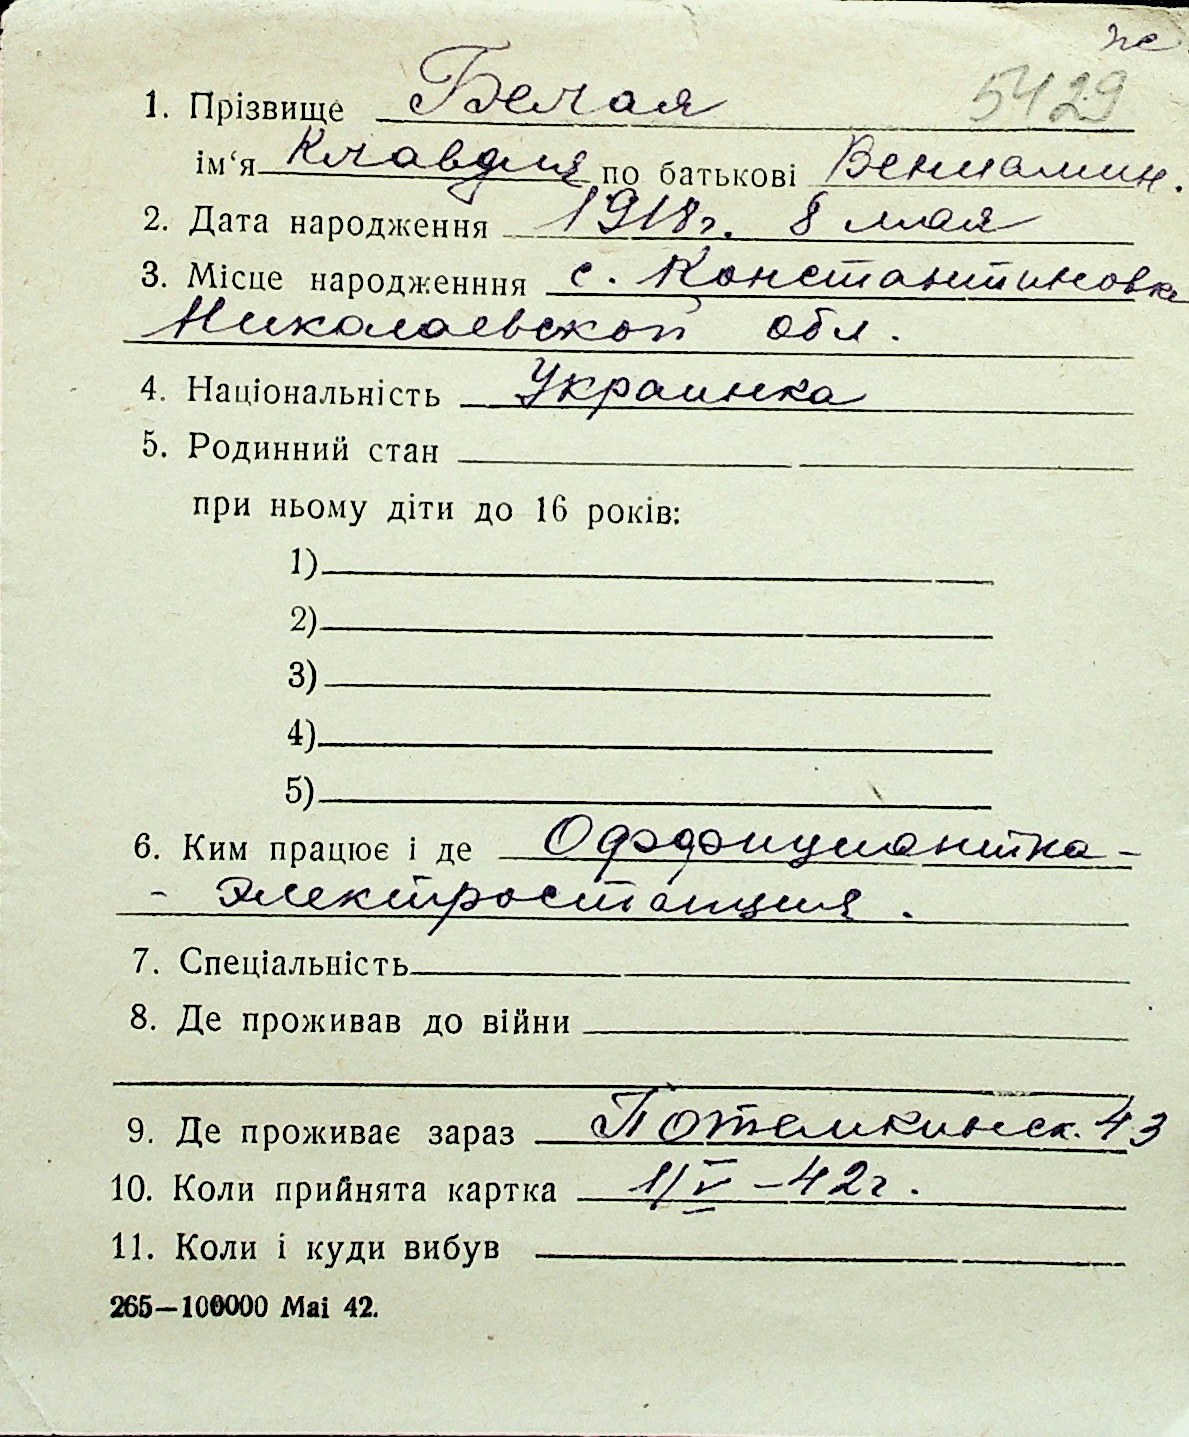 же
5429
1. Прізвище Белая
ім‘я Клавдия по батькові Вениамин.
2. Дата народження 1918г. 8 мая
3. Місце народженння с. Константиновка
Николаевской обл.
4. Національність Украинка
5. Родинний стан
при ньому діти до 16 років:
1)
2)
3)
4)
5)
6. Ким працює і де Оффициантка -
- Электростанция.
7. Спеціальність
8. Де проживав до війни
9. Де проживає зараз Потемкинск. 43
10. Коли прийнята картка 1/V – 42г.
11. Коли і куди вибув
265—100000 Mai 42.